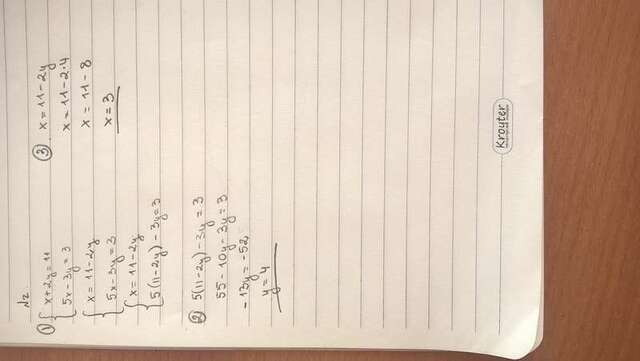 №2
① { x+2y=11
5x-3y=3
{ x=11-2y
5x-3y=3
{ x=11-2y
5(11-2y)-3y=3
② 5(11-2y)-3y=3
55-10y-3y=3
-13y=-52
y=4
③ x=11-2y
x=11-2·4
x=11-8
x=3
Kroyter